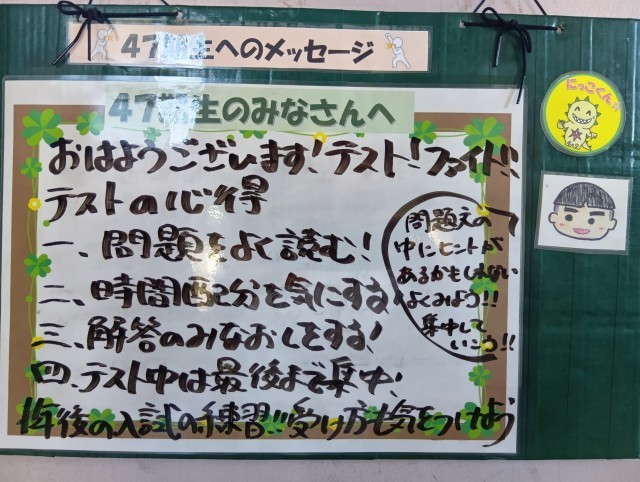 47期生へのメッセージ
47期生のみなさんへ
おはようございます!テスト!ファイト!!
テストの心得
一、問題をよく読む!
二、時間配分を気にする!
三、解答のみなおしをする!
四、テスト中は最後まで集中!
1年後の入試の練習!!受け方も気をつけよう
問題文の
中にヒントが
あるかもしれない
よくみよう!!
集中して
いこう!!
にっこくん